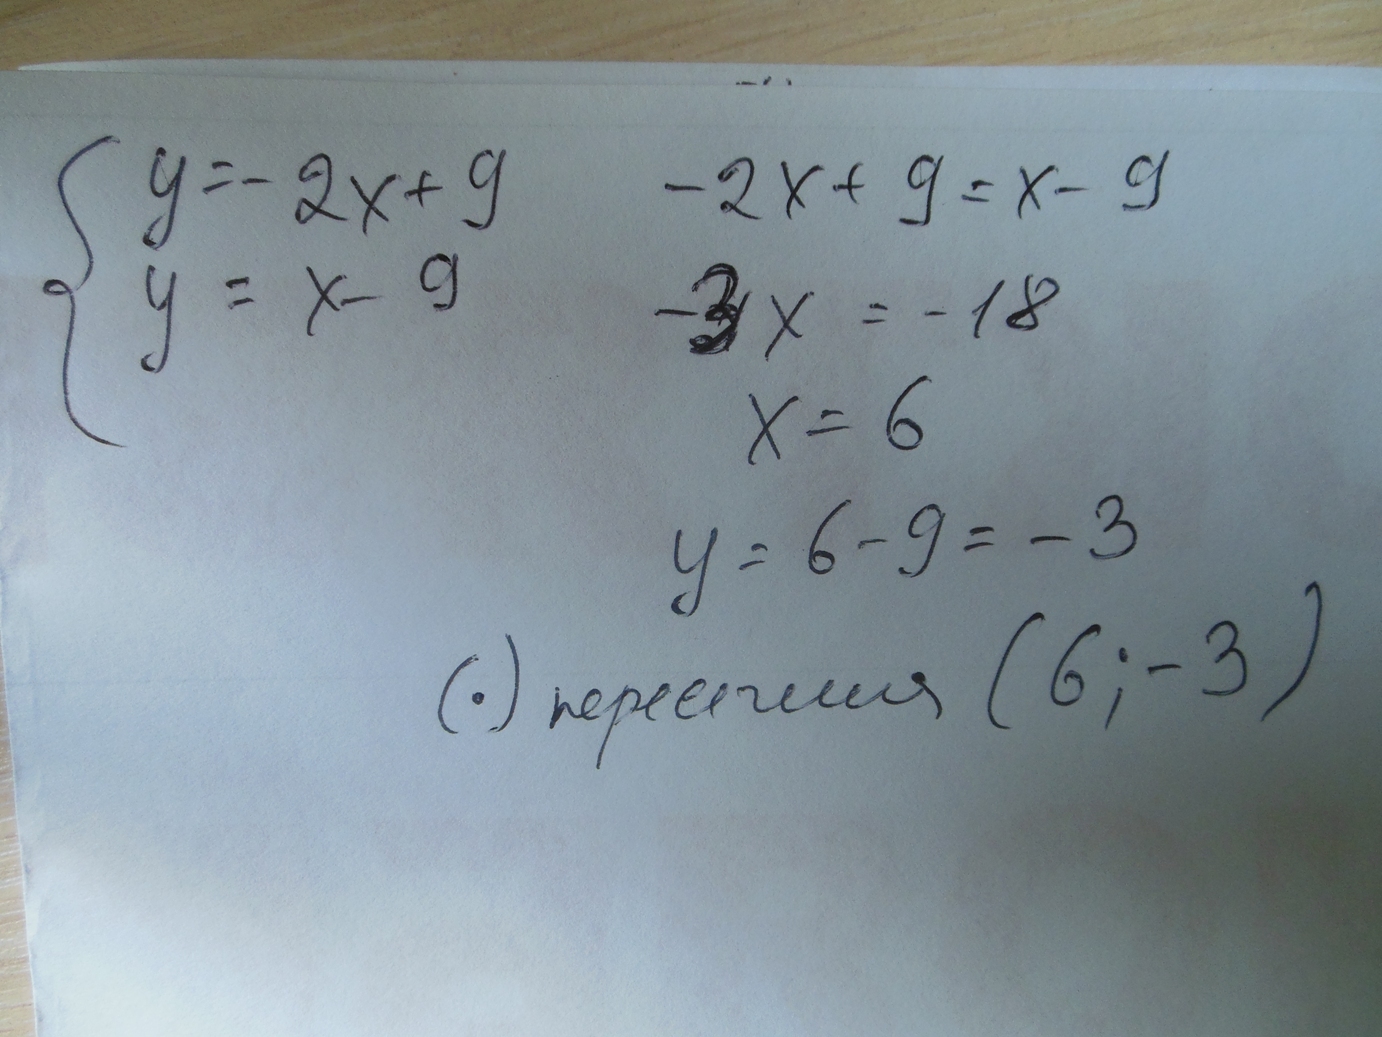 y = -2x + 9
y = x - 9
-2x + 9 = x - 9
-3x = -18
x = 6
y = 6 - 9 = -3
(·) пересечения (6; -3)